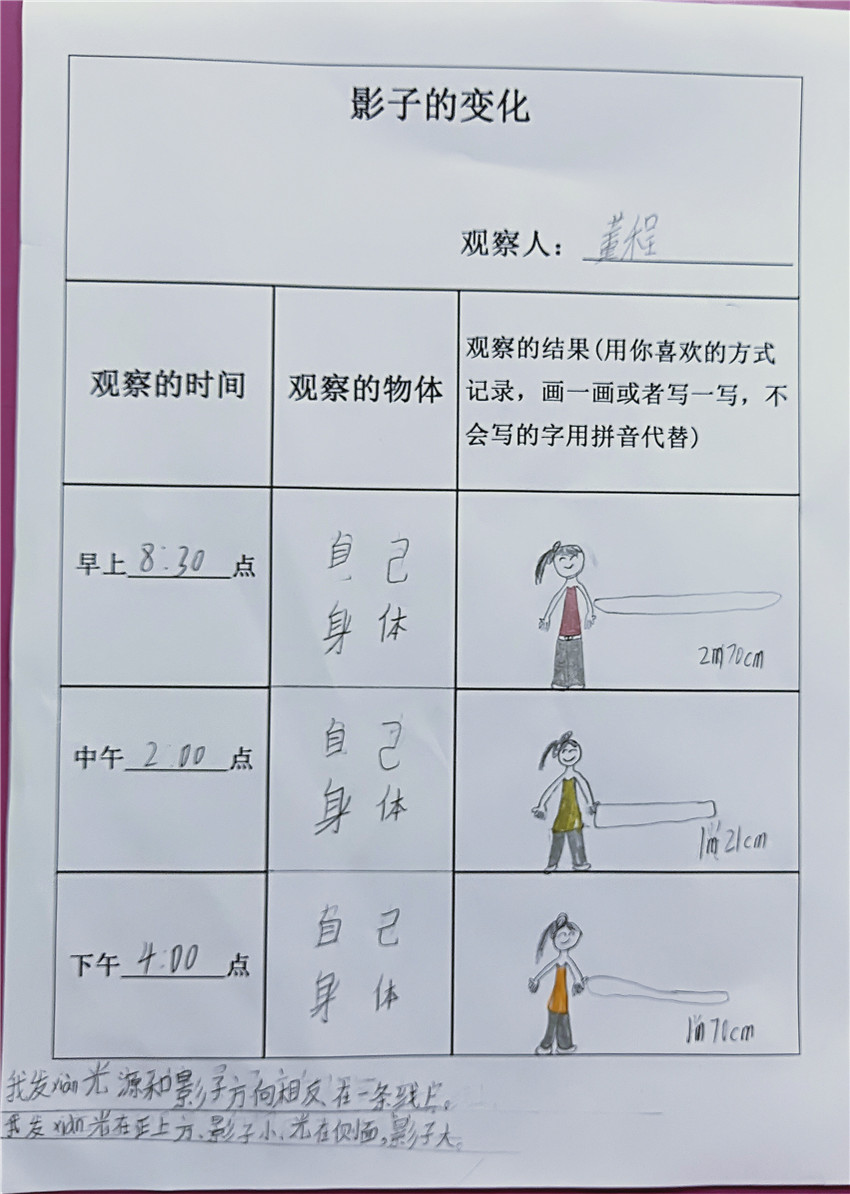 影子的变化
观察人：董程
观察的时间
观察的物体
观察的结果(用你喜欢的方式
记录，画一画或者写一写，不
会写的字用拼音代替)
早上8:30点
自己
身体
2m70cm
中午2:00点
自己
身体
1m21cm
下午4:00点
自己
身体
1m70cm
我发xiàn光源和影子方向相反、在一条线上。
我发xiàn光在正上方、影子小、光在侧面,影子大。